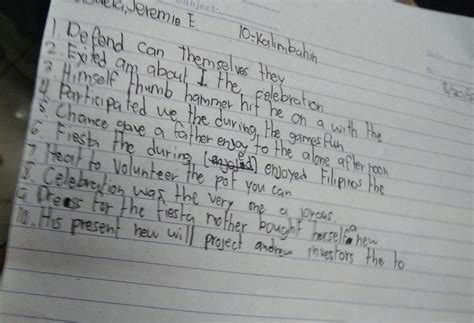 Jeremie E. 10-Kalimbahin
1. Defend can themselves they
2. Exited am about I the celebration
3. Himself thumb hammer hit he on a with the
4. Participated we the during, the games fun
5. Chance gave a father enjoy to the alone afternoon
6. Fiesta the during (enjoyed) enjoyed Filipinos the
7. Heat to volunteer the pot you can
8. Celebration was the very one a joyous.
9. Dress for the fiesta mother bought herself a new
10. His present new will project andrew investors the to